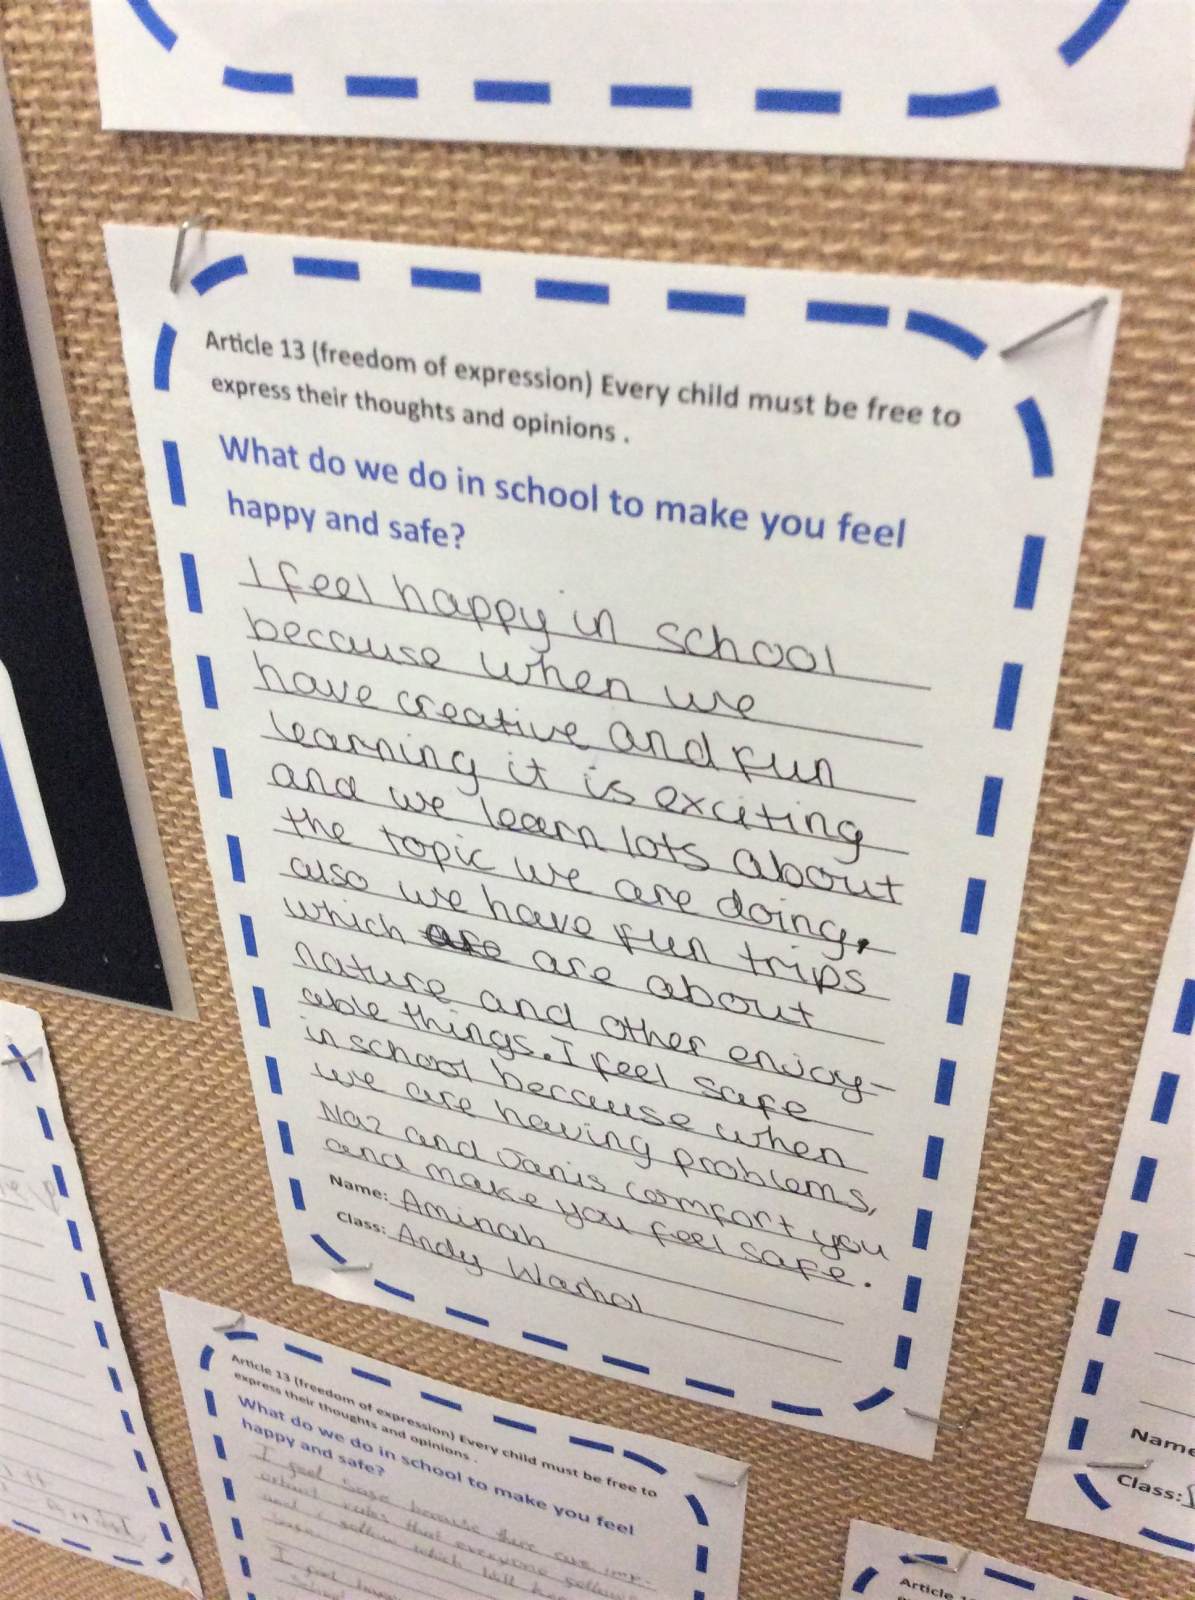 Article 13 (freedom of expression) Every child must be free to
express their thoughts and opinions .
What do we do in school to make you feel
happy and safe?
I feel happy in school
because when we
have creative and fun
learning it is exciting
and we learn lots about
the topic we are doing,
also we have fun trips
which are are about
nature and other enjoy-
able things. I feel safe
in school because when
we are having problems,
Naz and Janis comfort you
and make you feel safe.
Name: Aminah
Class: Andy Warhol
Article 13 (freedom of expression) Every child must be free to
express their thoughts and opinions .
What do we do in school to make you feel
happy and safe?
I feel safe because there are imp-
ortant rules that everyone follows
and I follow which will
I feel
school
Name
Class:
Article